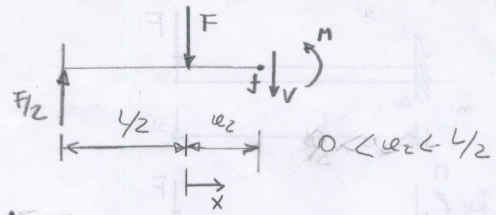 F
M
f
V
F/2
L/2
x₂
0 < x₂ < L/2
x